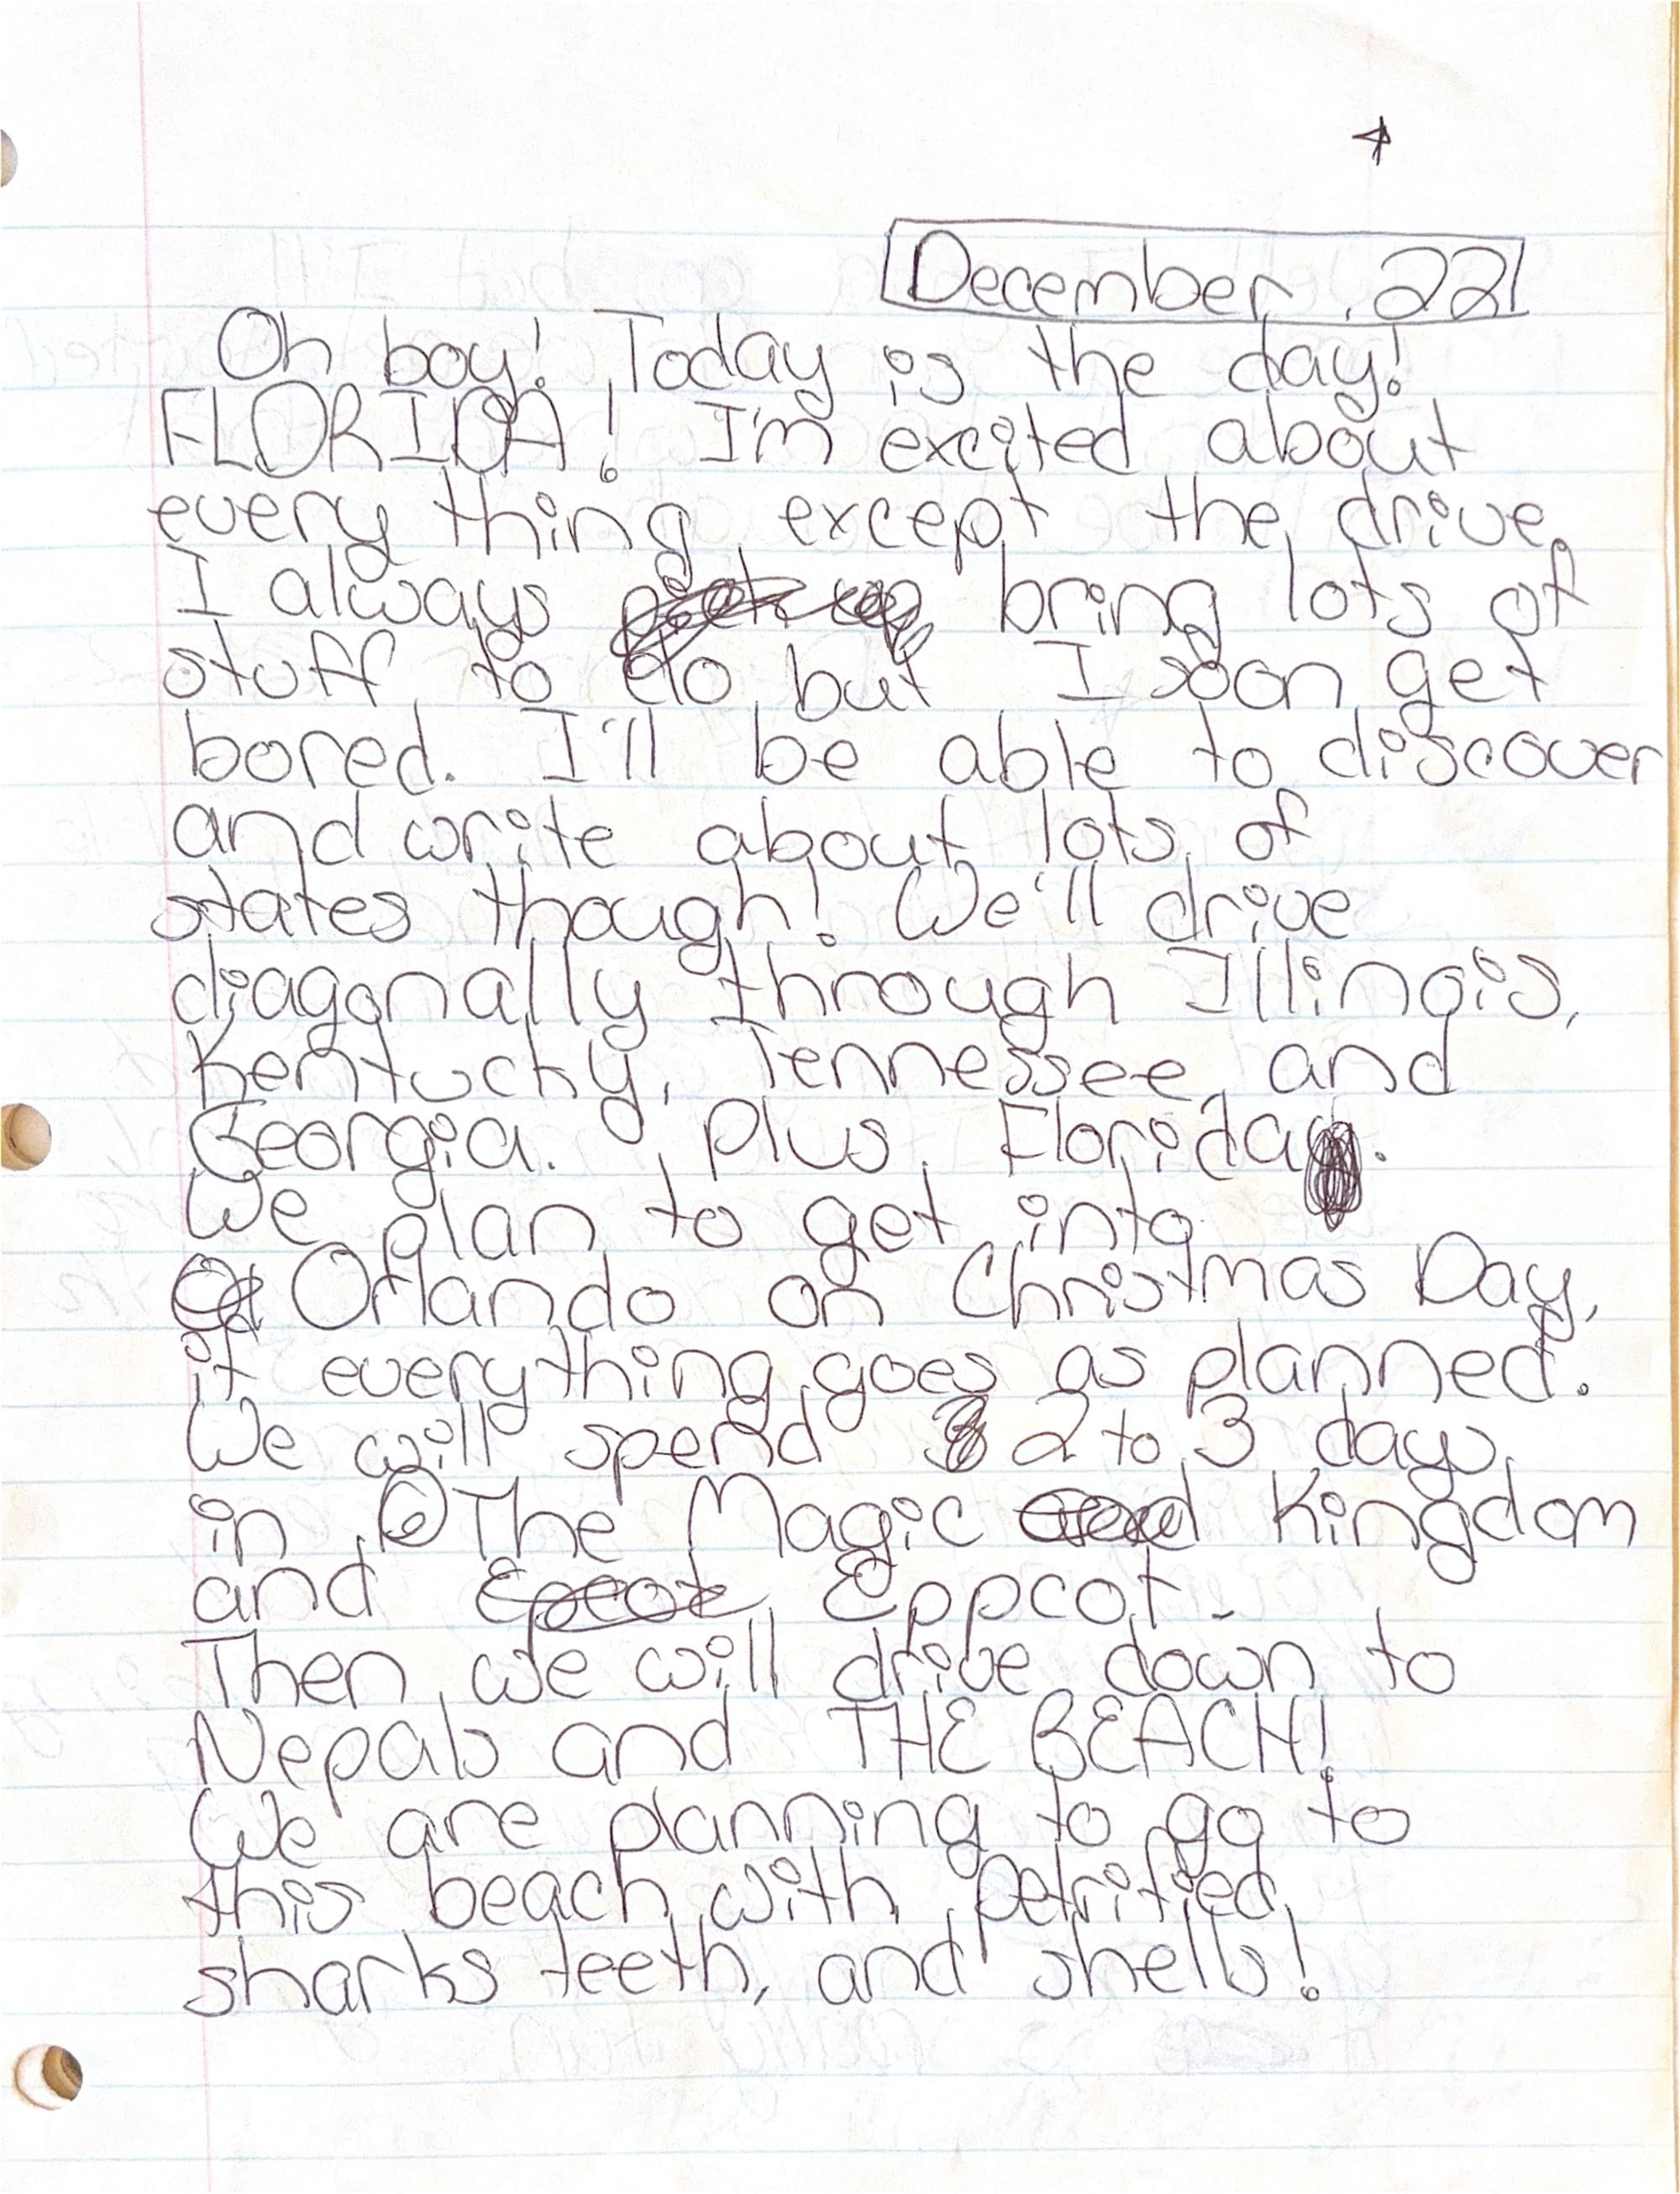 December 22
Oh boy! Today is the day!
FLORIDA! I'm excited about
every thing except the drive.
I always bring lots of
stuff to do but I soon get
bored. I'll be able to discover
and write about lots of
states though! We'll drive
diagonally through Illinois,
Kentucky, Tennessee, and
Georgia. Plus Florida.
We plan to get into
Orlando on Christmas Day,
if everything goes as planned.
We will spend 2 to 3 days
in The Magic Kingdom
and Eppcot.
Then we will drive down to
Nepals and THE BEACH!
We are planning to go to
this beach with petrified
sharks teeth, and shells!